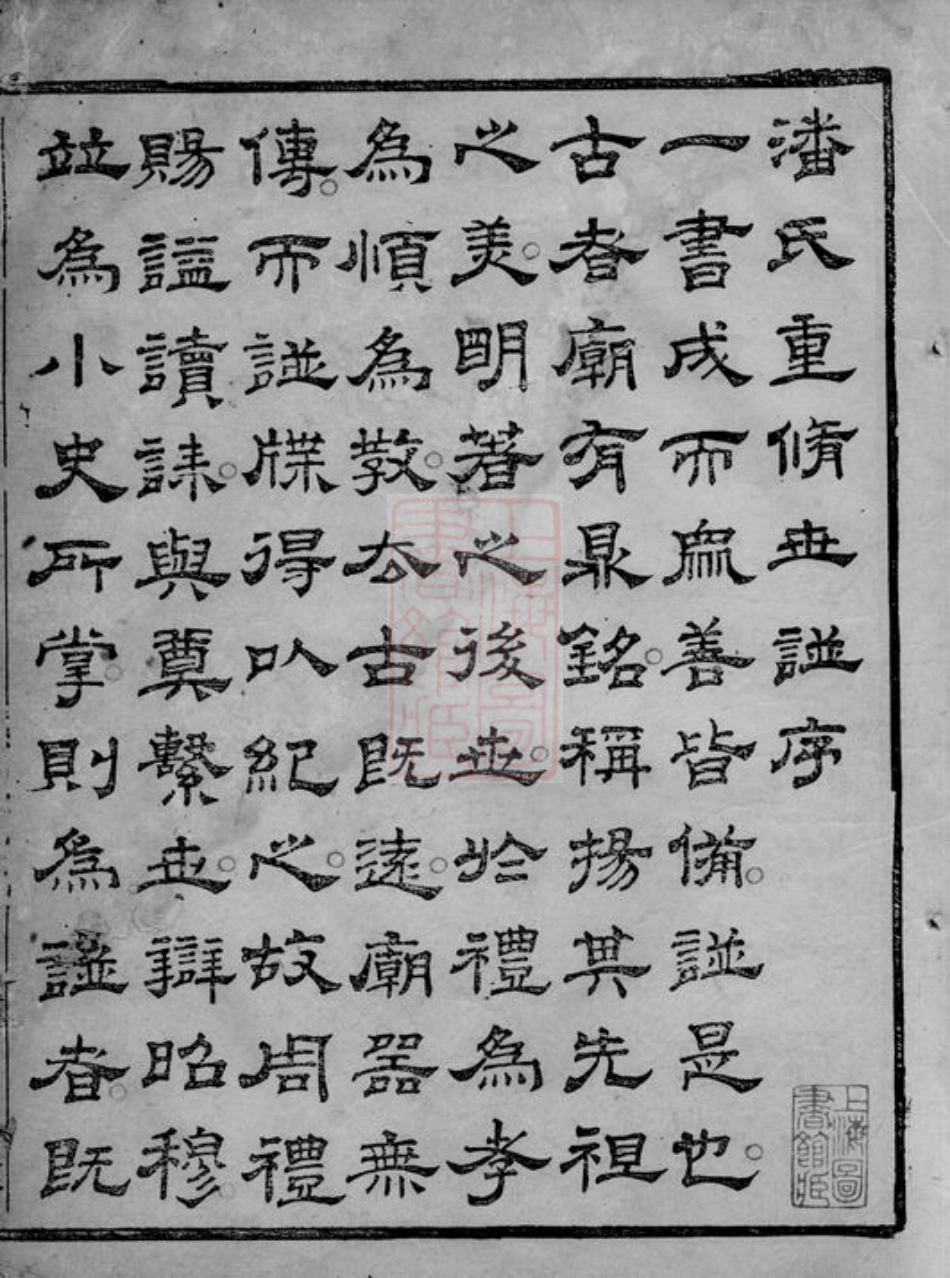 潘氏重脩世譜序
一書成而衆善皆備。譜是也。
古者廟有鼎銘。稱揚其先祖
之美。明著之後世。於禮為孝
為順為教。去古既遠。廟器無
傳。而譜牒得以紀之。故周禮
賜謚讀誄。與奠繫世。辯昭穆。
竝為小史所掌。則為譜者。既
上海圖書館藏